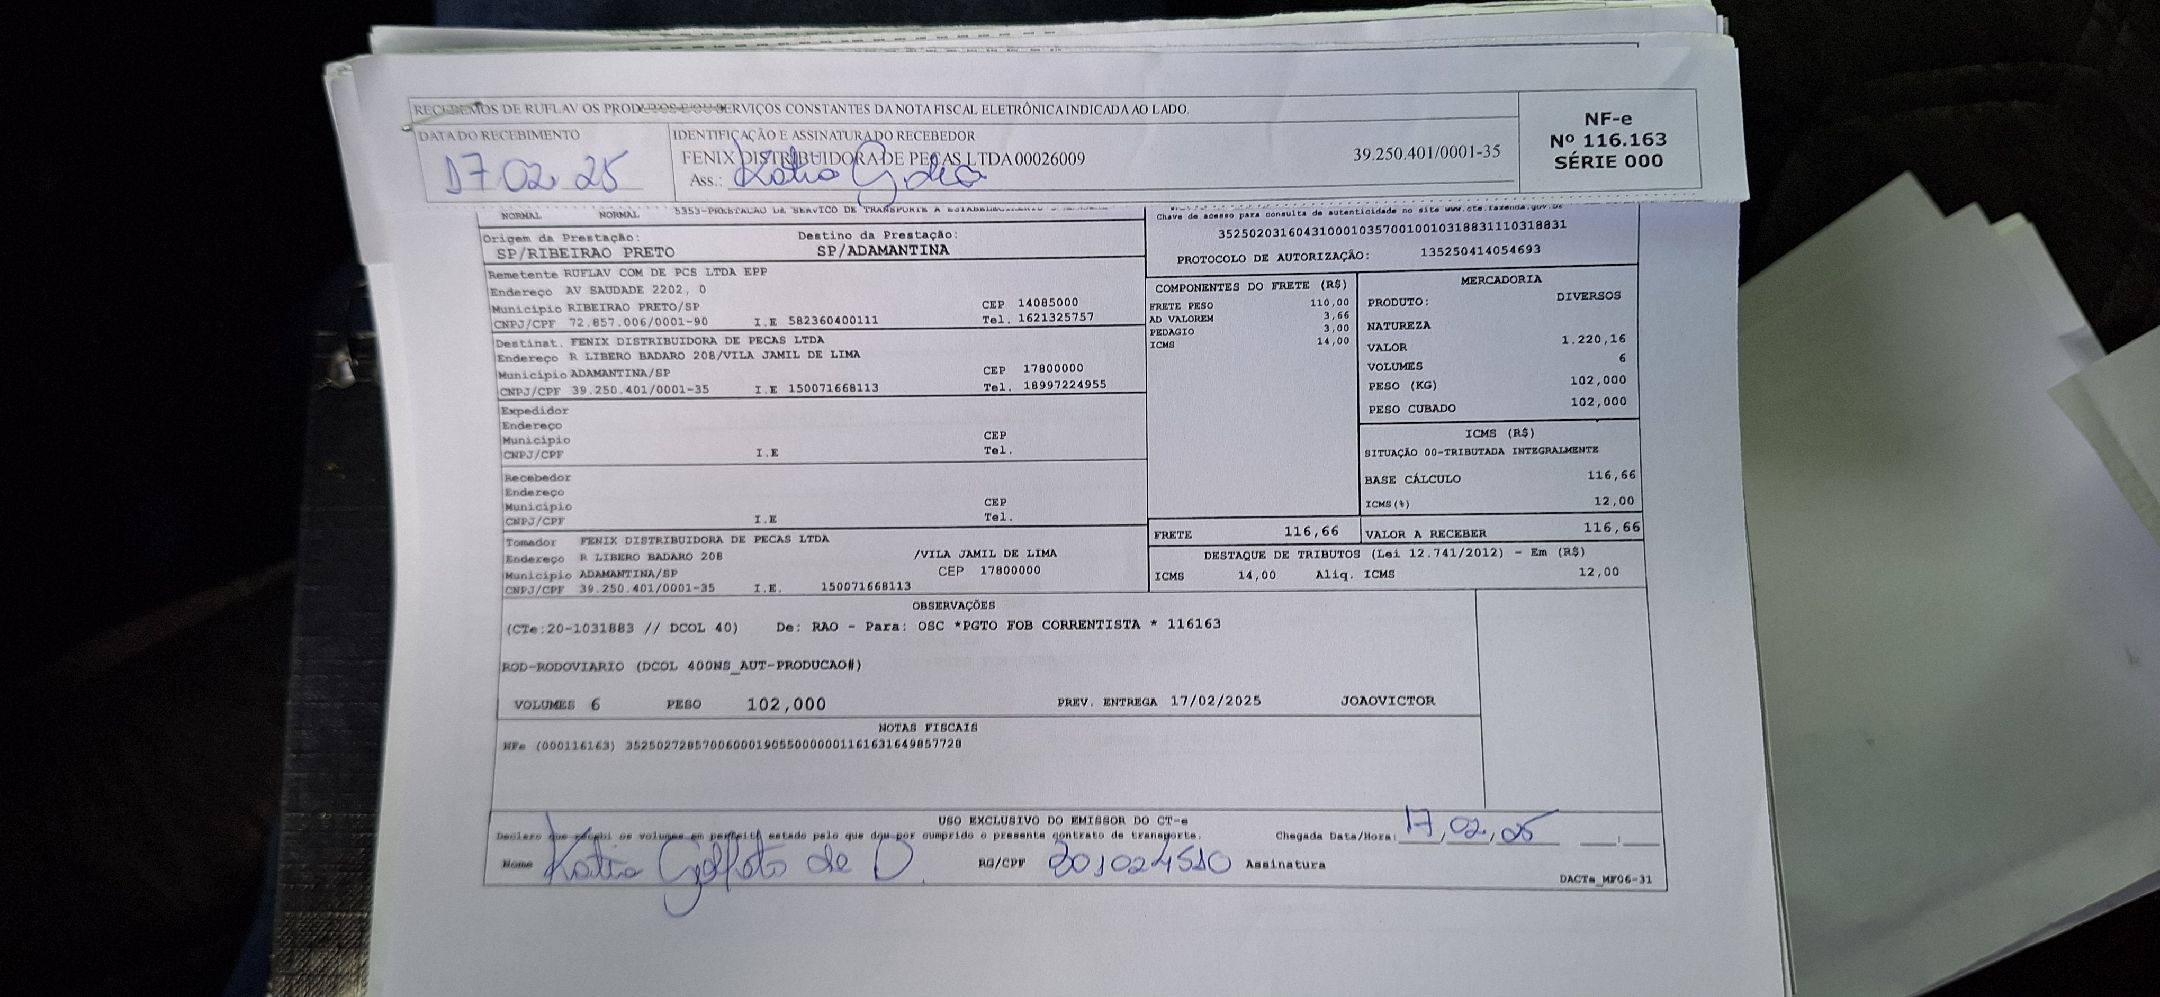 RECEBEMOS DE RUFLAV OS PRODUTOS E/OU SERVIÇOS CONSTANTES DA NOTA FISCAL ELETRÔNICA INDICADA AO LADO.
DATA DO RECEBIMENTO
17 02 25
IDENTIFICAÇÃO E ASSINATURA DO RECEBEDOR
FENIX DISTRIBUIDORA DE PECAS LTDA 00026009 39.250.401/0001-35
Ass.: Katia
NF-e
Nº 116.163
SÉRIE 000
NORMAL NORMAL 5353-PRESTACAO DE SERVICO DE TRANSPORTE A
Origem da Prestação: Destino da Prestação:
SP/RIBEIRAO PRETO SP/ADAMANTINA
Chave de acesso para consulta de autenticidade no site www.cte.fazenda.gov.br
35250203160431000103570010010318831110318831
PROTOCOLO DE AUTORIZAÇÃO: 135250414054693
Remetente RUFLAV COM DE PCS LTDA EPP
Endereço AV SAUDADE 2202, 0
Município RIBEIRAO PRETO/SP CEP 14085000
CNPJ/CPF 72.857.006/0001-90 I.E 582360400111 Tel. 1621325757
Destinat. FENIX DISTRIBUIDORA DE PECAS LTDA
Endereço R LIBERO BADARO 208/VILA JAMIL DE LIMA
Município ADAMANTINA/SP CEP 17800000
CNPJ/CPF 39.250.401/0001-35 I.E 150071668113 Tel. 18997224955
Expedidor
Endereço
Município CEP
CNPJ/CPF I.E Tel.
Recebedor
Endereço
Município CEP
CNPJ/CPF I.E Tel.
Tomador FENIX DISTRIBUIDORA DE PECAS LTDA
Endereço R LIBERO BADARO 208 /VILA JAMIL DE LIMA
Município ADAMANTINA/SP CEP 17800000
CNPJ/CPF 39.250.401/0001-35 I.E. 150071668113
COMPONENTES DO FRETE (R$)
FRETE PESO 110,00
AD VALOREM 3,66
PEDAGIO 3,00
ICMS 14,00
MERCADORIA
PRODUTO: DIVERSOS
NATUREZA
VALOR 1.220,16
VOLUMES 6
PESO (KG) 102,000
PESO CUBADO 102,000
ICMS (R$)
SITUAÇÃO 00-TRIBUTADA INTEGRALMENTE
BASE CÁLCULO 116,66
ICMS(%) 12,00
FRETE 116,66 VALOR A RECEBER 116,66
DESTAQUE DE TRIBUTOS (Lei 12.741/2012) - Em (R$)
ICMS 14,00 Aliq. ICMS 12,00
OBSERVAÇÕES
(CTe:20-1031883 // DCOL 40) De: RAO - Para: OSC *PGTO FOB CORRENTISTA * 116163
ROD-RODOVIARIO (DCOL 400NS_AUT-PRODUCAO#)
VOLUMES 6 PESO 102,000 PREV. ENTREGA 17/02/2025 JOAOVICTOR
NOTAS FISCAIS
NFe (000116163) 35250272857006000190550000001161631649857728
USO EXCLUSIVO DO EMISSOR DO CT-e
Declaro que recebi os volumes em perfeito estado pelo que dou por cumprido o presente contrato de transporte. Chegada Data/Hora: 17, 02, 25
Nome Katia de D. RG/CPF 201024510 Assinatura
DACTe_MF06-31